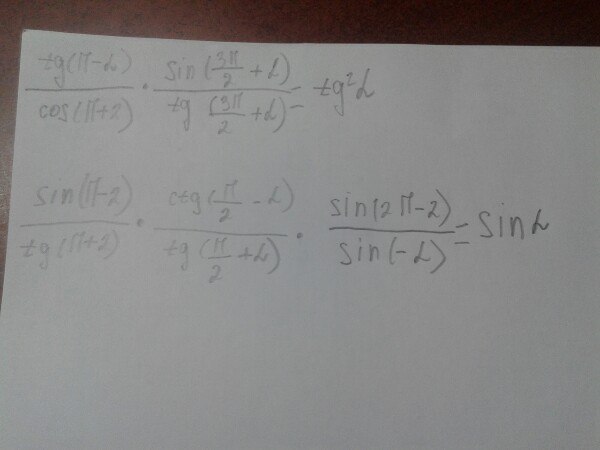 tg(π-α)/cos(π+2) · sin(3π/2 + α)/tg(3π/2 + α) = tg²α
sin(π-2)/tg(π+2) · ctg(π/2 - α)/tg(π/2 + α) · sin(2π-2)/sin(-α) = sin α